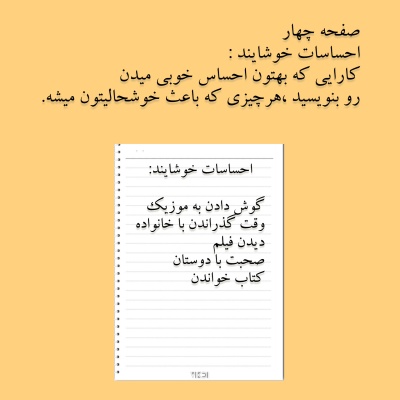 صفحه چهار
احساسات خوشایند :
کارایی که بهتون احساس خوبی میدن
رو بنویسید ،هرچیزی که باعث خوشحالیتون میشه.
احساسات خوشایند:
گوش دادن به موزیک
وقت گذراندن با خانواده
دیدن فیلم
صحبت با دوستان
کتاب خواندن